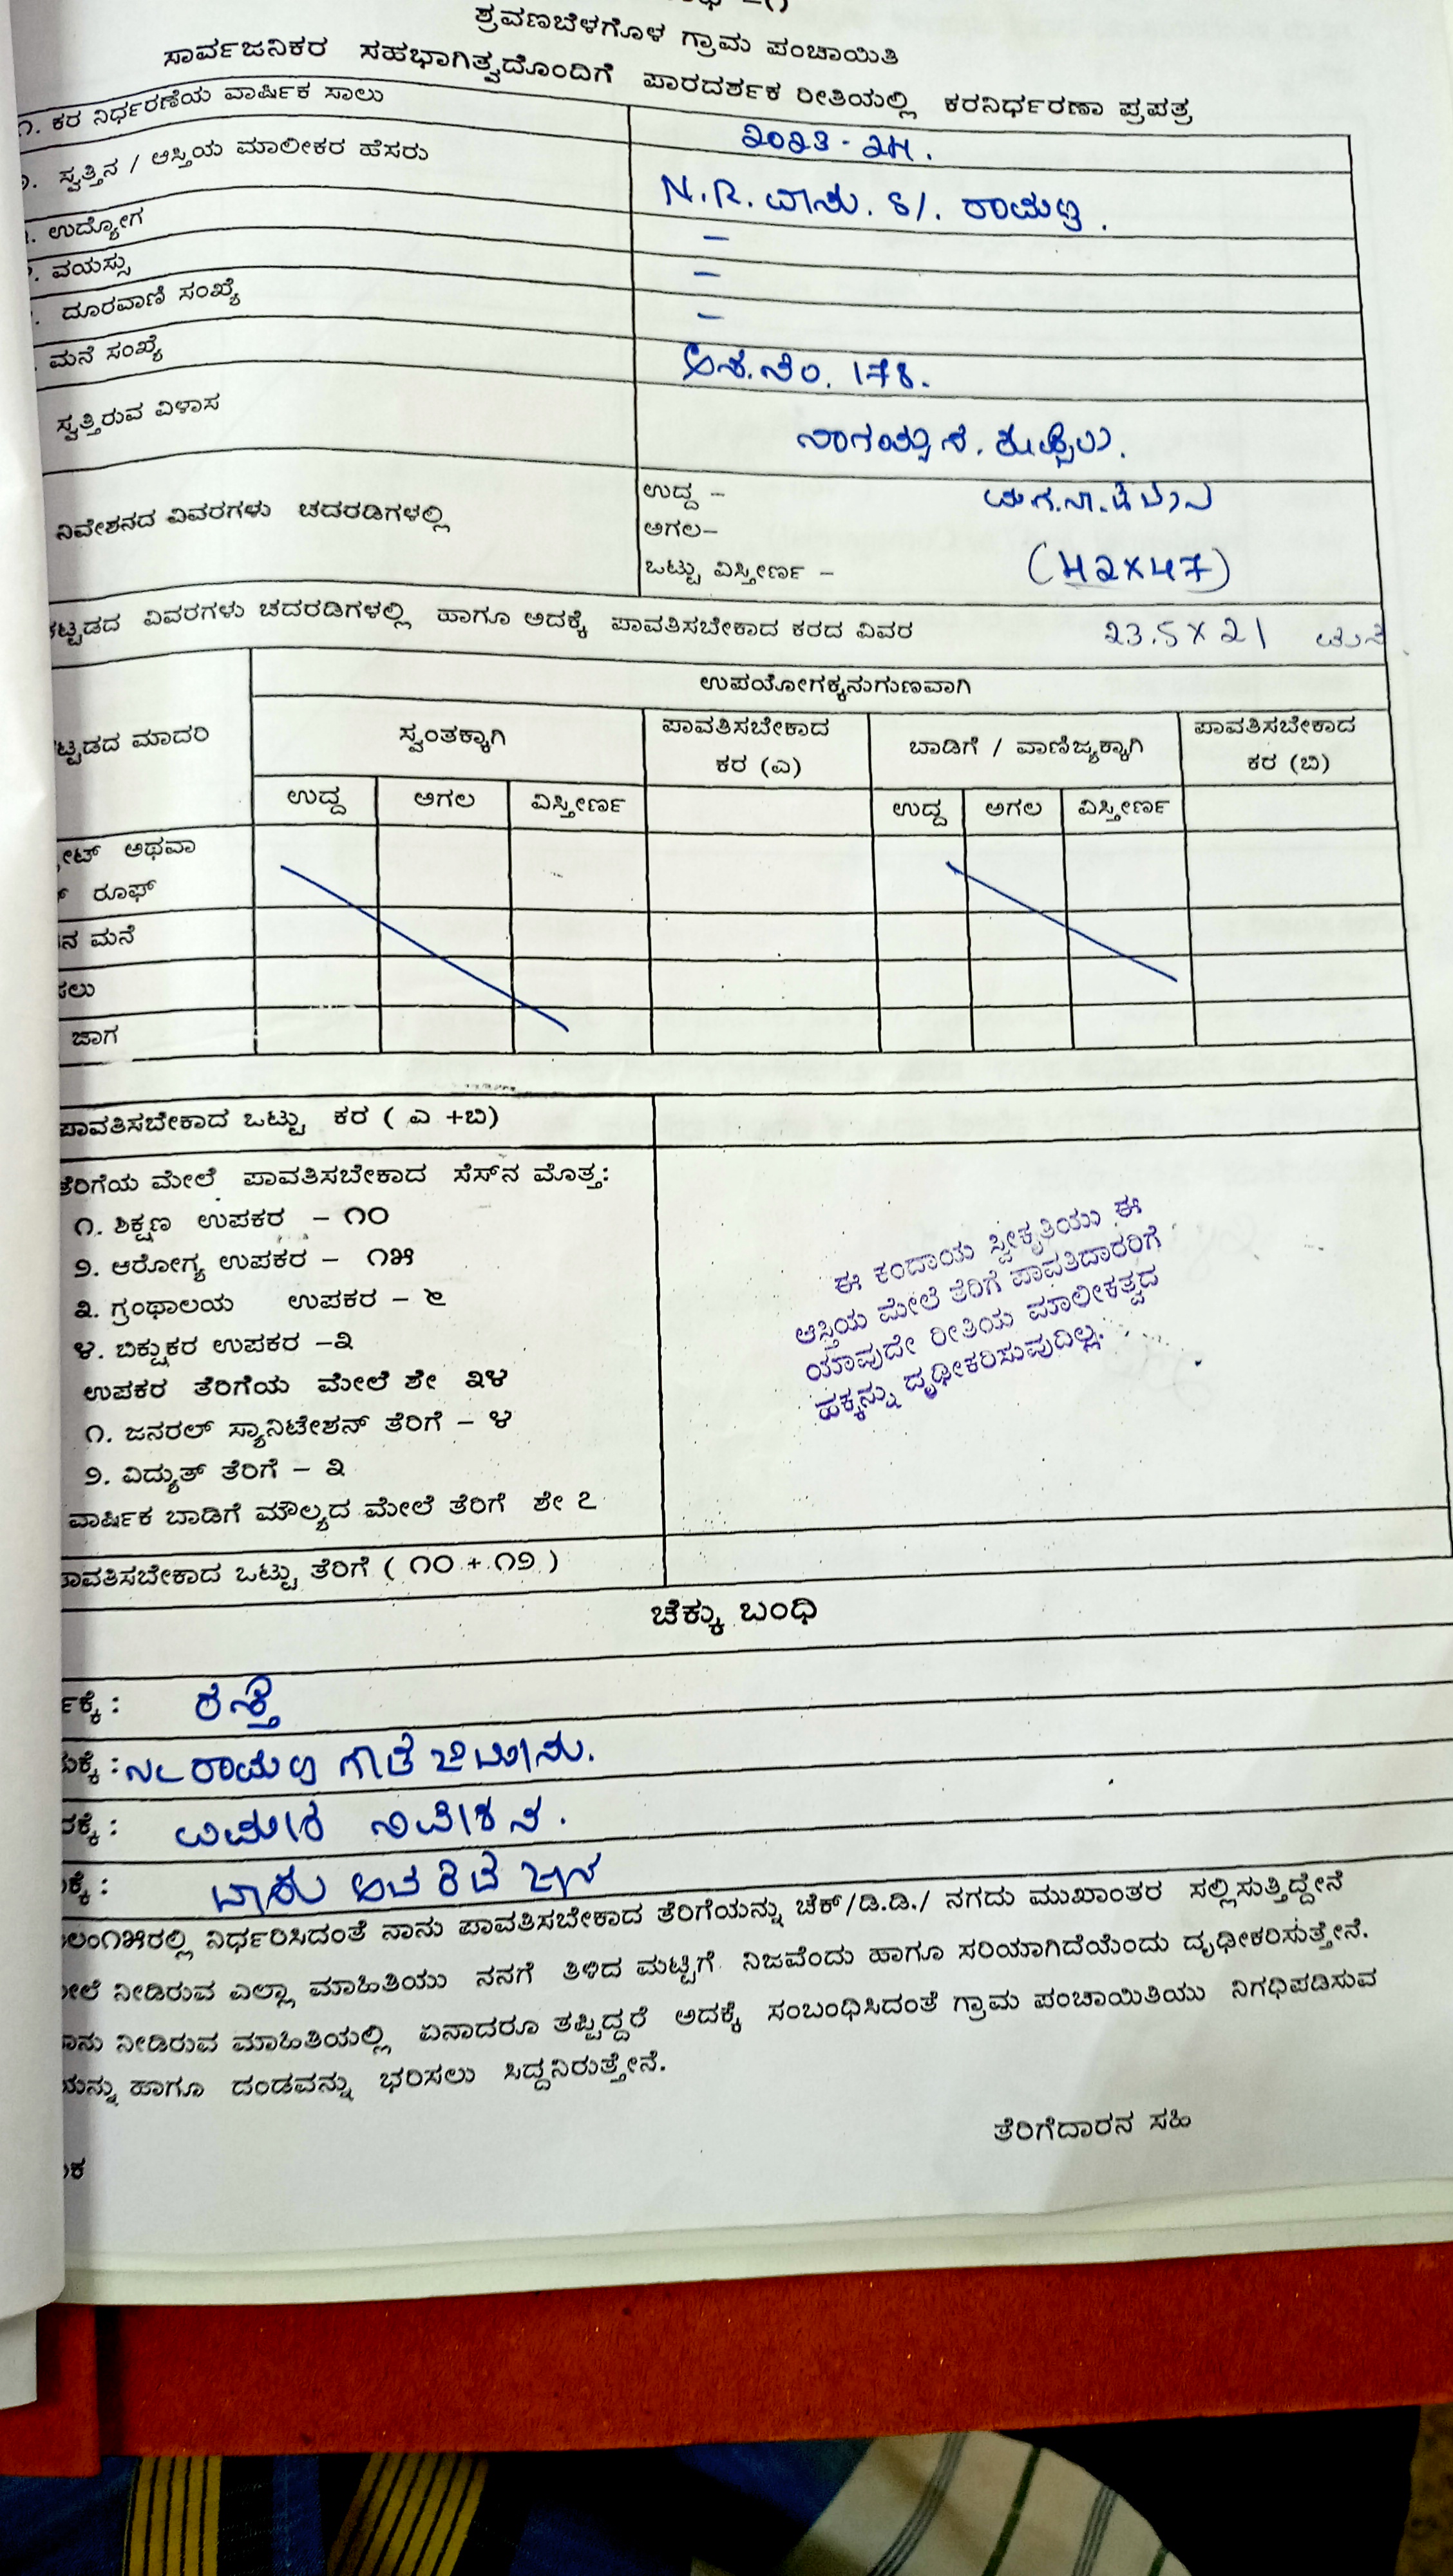 ಶ್ರವಣಬೆಳಗೊಳ ಗ್ರಾಮ ಪಂಚಾಯಿತಿ
ಸಾರ್ವಜನಿಕರ ಸಹಭಾಗಿತ್ವದೊಂದಿಗೆ ಪಾರದರ್ಶಕ ರೀತಿಯಲ್ಲಿ ಕರನಿರ್ಧರಣಾ ಪ್ರಪತ್ರ
೧. ಕರ ನಿರ್ಧರಣೆಯ ವಾರ್ಷಿಕ ಸಾಲು 2023-24.
ಸ್ವತ್ತಿನ / ಆಸ್ತಿಯ ಮಾಲೀಕರ ಹೆಸರು N.R. ವಾಸು. S/. ರಾಮಣ್ಣ.
ಉದ್ಯೋಗ –
ವಯಸ್ಸು –
ದೂರವಾಣಿ ಸಂಖ್ಯೆ –
ಮನೆ ಸಂಖ್ಯೆ 178.
ಸ್ವತ್ತಿರುವ ವಿಳಾಸ
ನಿವೇಶನದ ವಿವರಗಳು ಚದರಡಿಗಳಲ್ಲಿ
ಉದ್ದ –
ಅಗಲ–
ಒಟ್ಟು ವಿಸ್ತೀರ್ಣ – (42X47)
ಕಟ್ಟಡದ ವಿವರಗಳು ಚದರಡಿಗಳಲ್ಲಿ ಹಾಗೂ ಅದಕ್ಕೆ ಪಾವತಿಸಬೇಕಾದ ಕರದ ವಿವರ 23.5X21 ಮನೆ
ಉಪಯೋಗಕ್ಕನುಗುಣವಾಗಿ
ಟ್ಟಡದ ಮಾದರಿ ಸ್ವಂತಕ್ಕಾಗಿ ಪಾವತಿಸಬೇಕಾದ ಕರ (ಎ) ಬಾಡಿಗೆ / ವಾಣಿಜ್ಯಕ್ಕಾಗಿ ಪಾವತಿಸಬೇಕಾದ ಕರ (ಬಿ)
ಉದ್ದ ಅಗಲ ವಿಸ್ತೀರ್ಣ ಉದ್ದ ಅಗಲ ವಿಸ್ತೀರ್ಣ
ಅಥವಾ
ರೂಫ್
ನ ಮನೆ
ಸಲು
ಜಾಗ
ಪಾವತಿಸಬೇಕಾದ ಒಟ್ಟು ಕರ ( ಎ +ಬಿ)
ತೆರಿಗೆಯ ಮೇಲೆ ಪಾವತಿಸಬೇಕಾದ ಸೆಸ್‌ನ ಮೊತ್ತ:
೧. ಶಿಕ್ಷಣ ಉಪಕರ – ೧೦
೨. ಆರೋಗ್ಯ ಉಪಕರ – ೧೫
೩. ಗ್ರಂಥಾಲಯ ಉಪಕರ – ೬
೪. ಬಿಕ್ಷುಕರ ಉಪಕರ –೩
ಉಪಕರ ತೆರಿಗೆಯ ಮೇಲೆ ಶೇ ೩೪
೧. ಜನರಲ್ ಸ್ಯಾನಿಟೇಶನ್ ತೆರಿಗೆ – ೪
೨. ವಿದ್ಯುತ್ ತೆರಿಗೆ – ೩
ವಾರ್ಷಿಕ ಬಾಡಿಗೆ ಮೌಲ್ಯದ ಮೇಲೆ ತೆರಿಗೆ ಶೇ ೭
ಈ ಕಂದಾಯ ಸ್ವೀಕೃತಿಯು ಈ
ಆಸ್ತಿಯ ಮೇಲೆ ತೆರಿಗೆ ಪಾವತಿದಾರರಿಗೆ
ಯಾವುದೇ ರೀತಿಯ ಮಾಲೀಕತ್ವದ
ಹಕ್ಕನ್ನು ದೃಢೀಕರಿಸುವುದಿಲ್ಲ.
ಪಾವತಿಸಬೇಕಾದ ಒಟ್ಟು ತೆರಿಗೆ ( ೧೦ + ೧೨ )
ಚೆಕ್ಕು ಬಂಧಿ
ರ್ವಕ್ಕೆ : ರಸ್ತೆ
ಮಕ್ಕೆ : ರಾಮಣ್ಣ
ರಕ್ಕೆ : ನಿವೇಶನ.
ಕ್ಕೆ :
ಲಂ೧೫ರಲ್ಲಿ ನಿರ್ಧರಿಸಿದಂತೆ ನಾನು ಪಾವತಿಸಬೇಕಾದ ತೆರಿಗೆಯನ್ನು ಚೆಕ್/ಡಿ.ಡಿ./ ನಗದು ಮುಖಾಂತರ ಸಲ್ಲಿಸುತ್ತಿದ್ದೇನೆ
ಮೇಲೆ ನೀಡಿರುವ ಎಲ್ಲಾ ಮಾಹಿತಿಯು ನನಗೆ ತಿಳಿದ ಮಟ್ಟಿಗೆ ನಿಜವೆಂದು ಹಾಗೂ ಸರಿಯಾಗಿದೆಯೆಂದು ದೃಢೀಕರಿಸುತ್ತೇನೆ.
ನಾನು ನೀಡಿರುವ ಮಾಹಿತಿಯಲ್ಲಿ ಏನಾದರೂ ತಪ್ಪಿದ್ದರೆ ಅದಕ್ಕೆ ಸಂಬಂಧಿಸಿದಂತೆ ಗ್ರಾಮ ಪಂಚಾಯಿತಿಯು ನಿಗಧಿಪಡಿಸುವ
ಯನ್ನು ಹಾಗೂ ದಂಡವನ್ನು ಭರಿಸಲು ಸಿದ್ದನಿರುತ್ತೇನೆ.
ತೆರಿಗೆದಾರನ ಸಹಿ